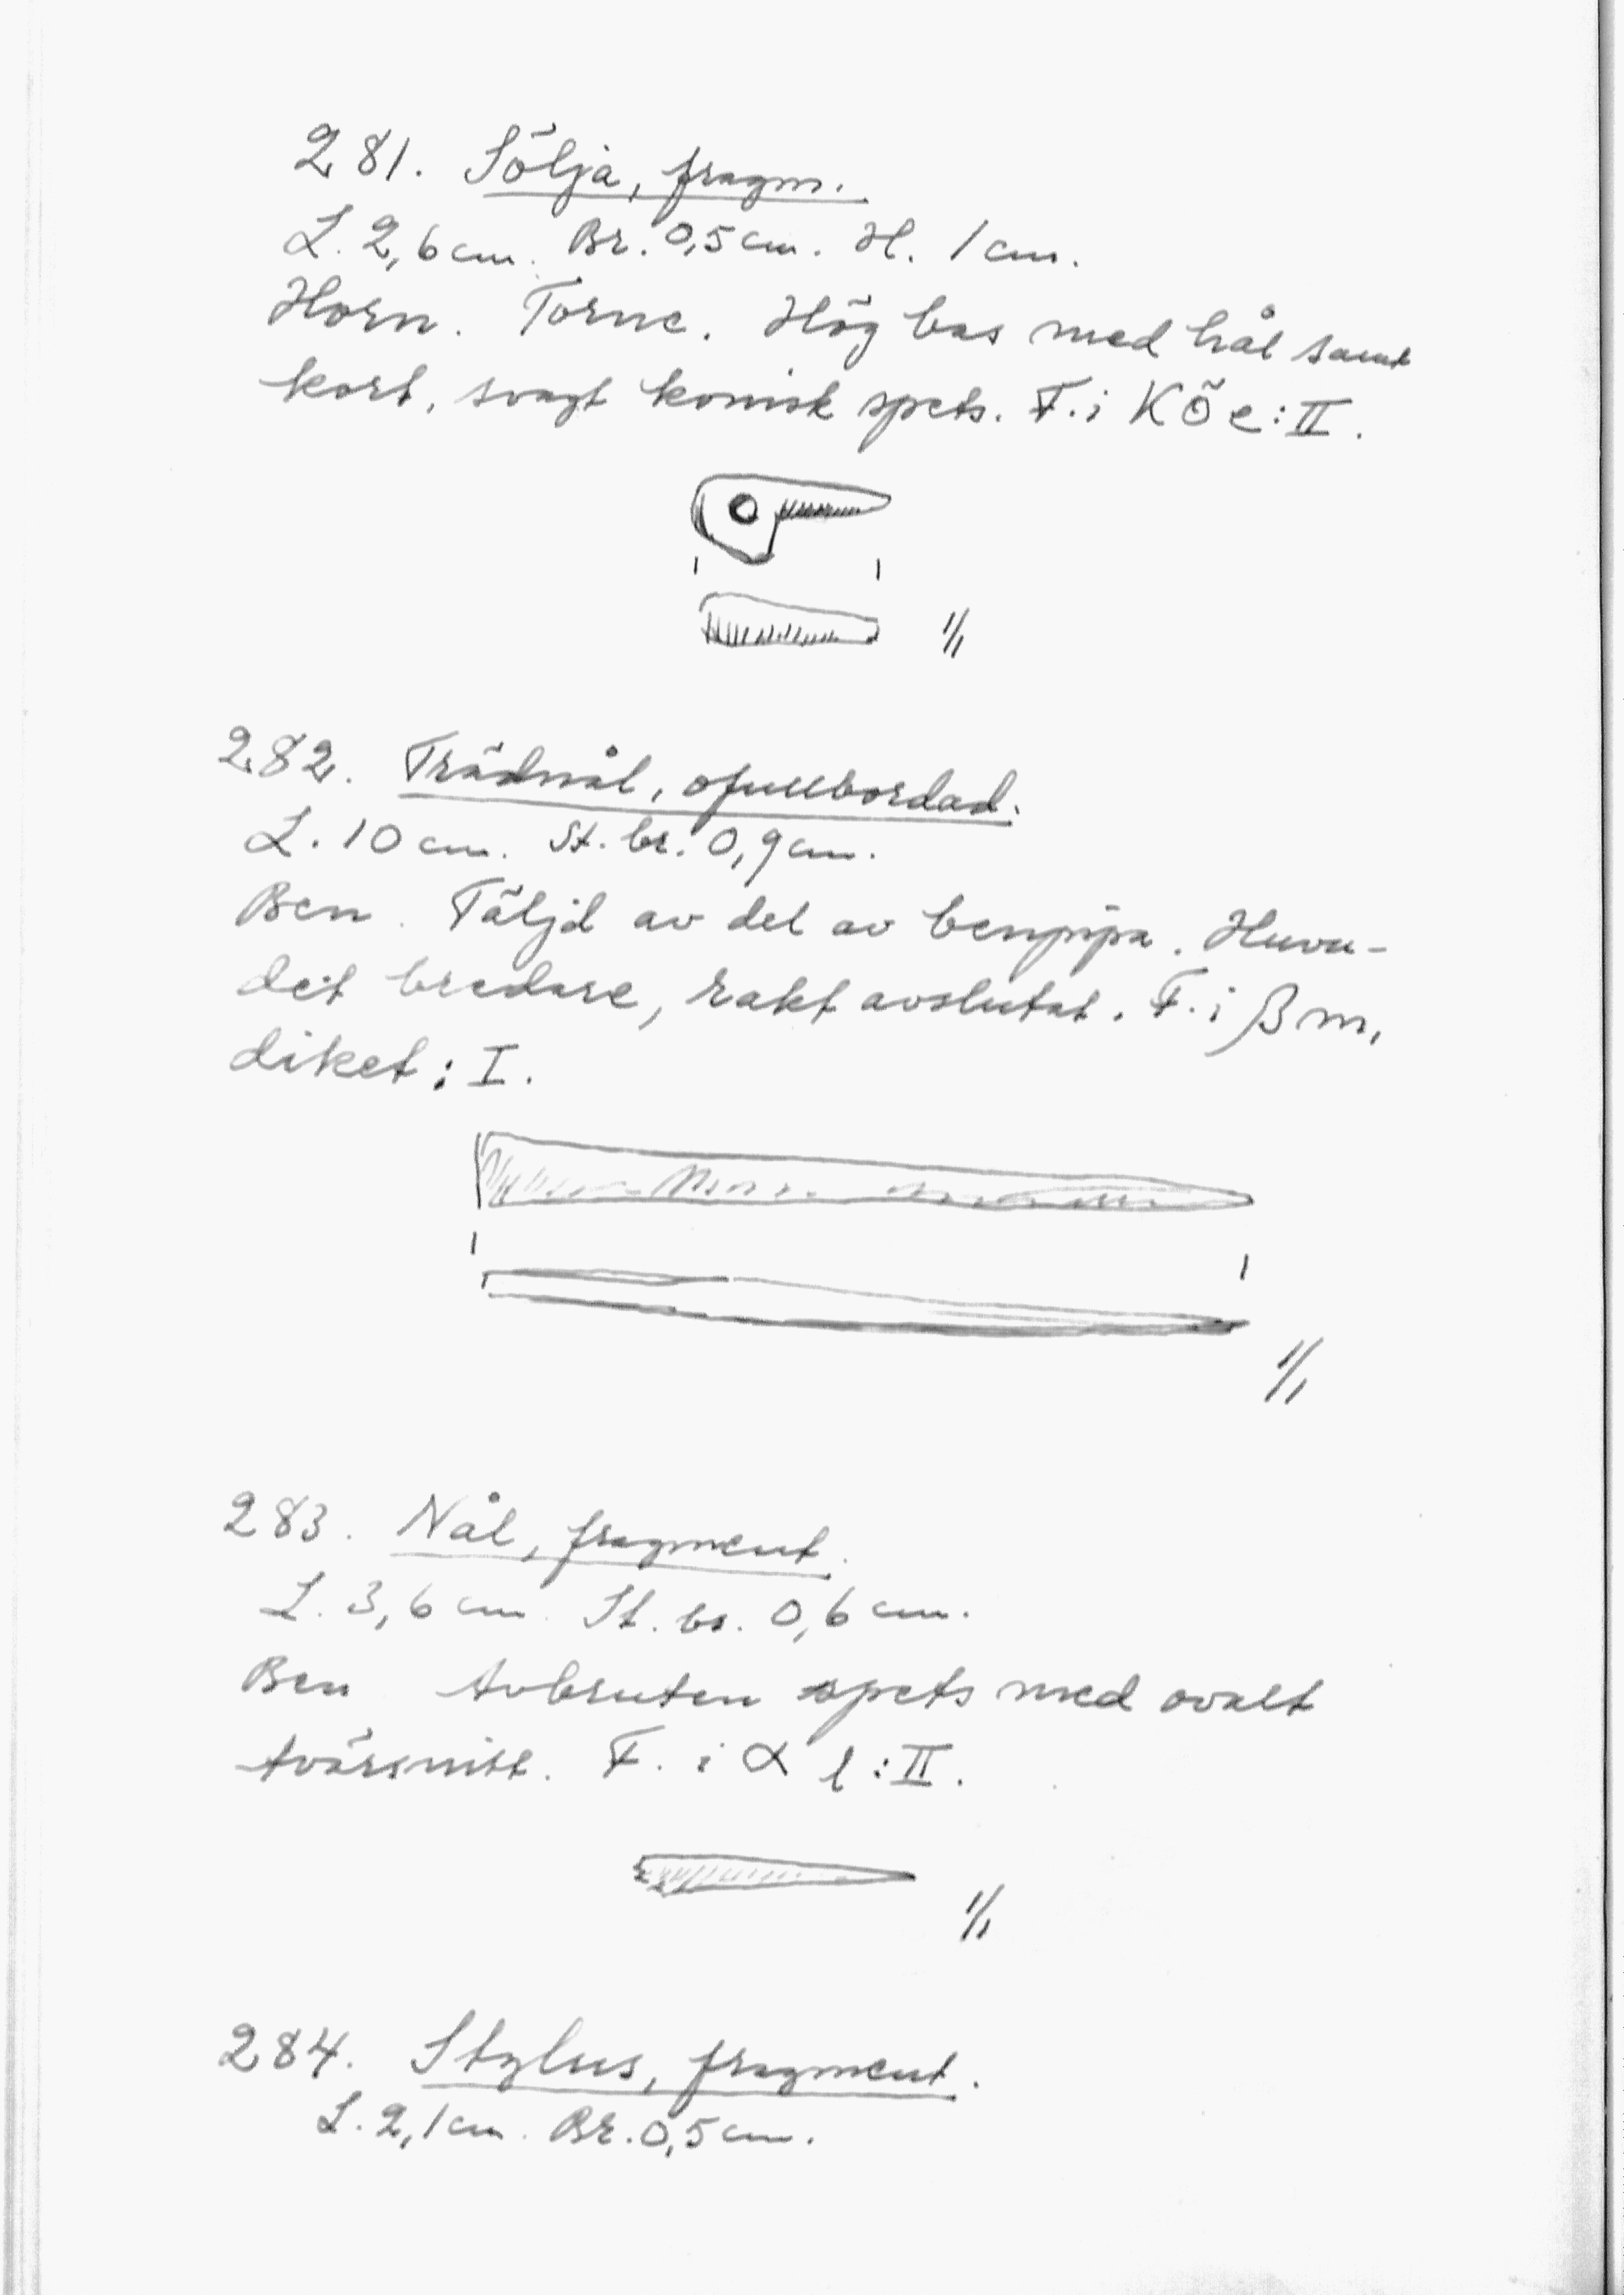 281. Sölja, fragm.
L. 2,6 cm. Br. 0,5 cm. H. 1 cm.
Horn. Torne. Hög bas med hål samt
kort, svagt konisk spets. F. i KÖ e: II.
1/1
282. Trådnål, ofullbordad.
L. 10 cm. St. br. 0,9 cm.
Ben. Täljd av del av benpipa. Huvu-
det bredare, rakt avslutat. F. i β m,
diket: I.
1/1
283. Nål, fragment.
L. 3,6 cm. St. br. 0,6 cm.
Ben. Avbruten spets med ovalt
tvärsnitt. F. i α l: II.
1/1
284. Stylus, fragment.
L. 2,1 cm. Br. 0,5 cm.